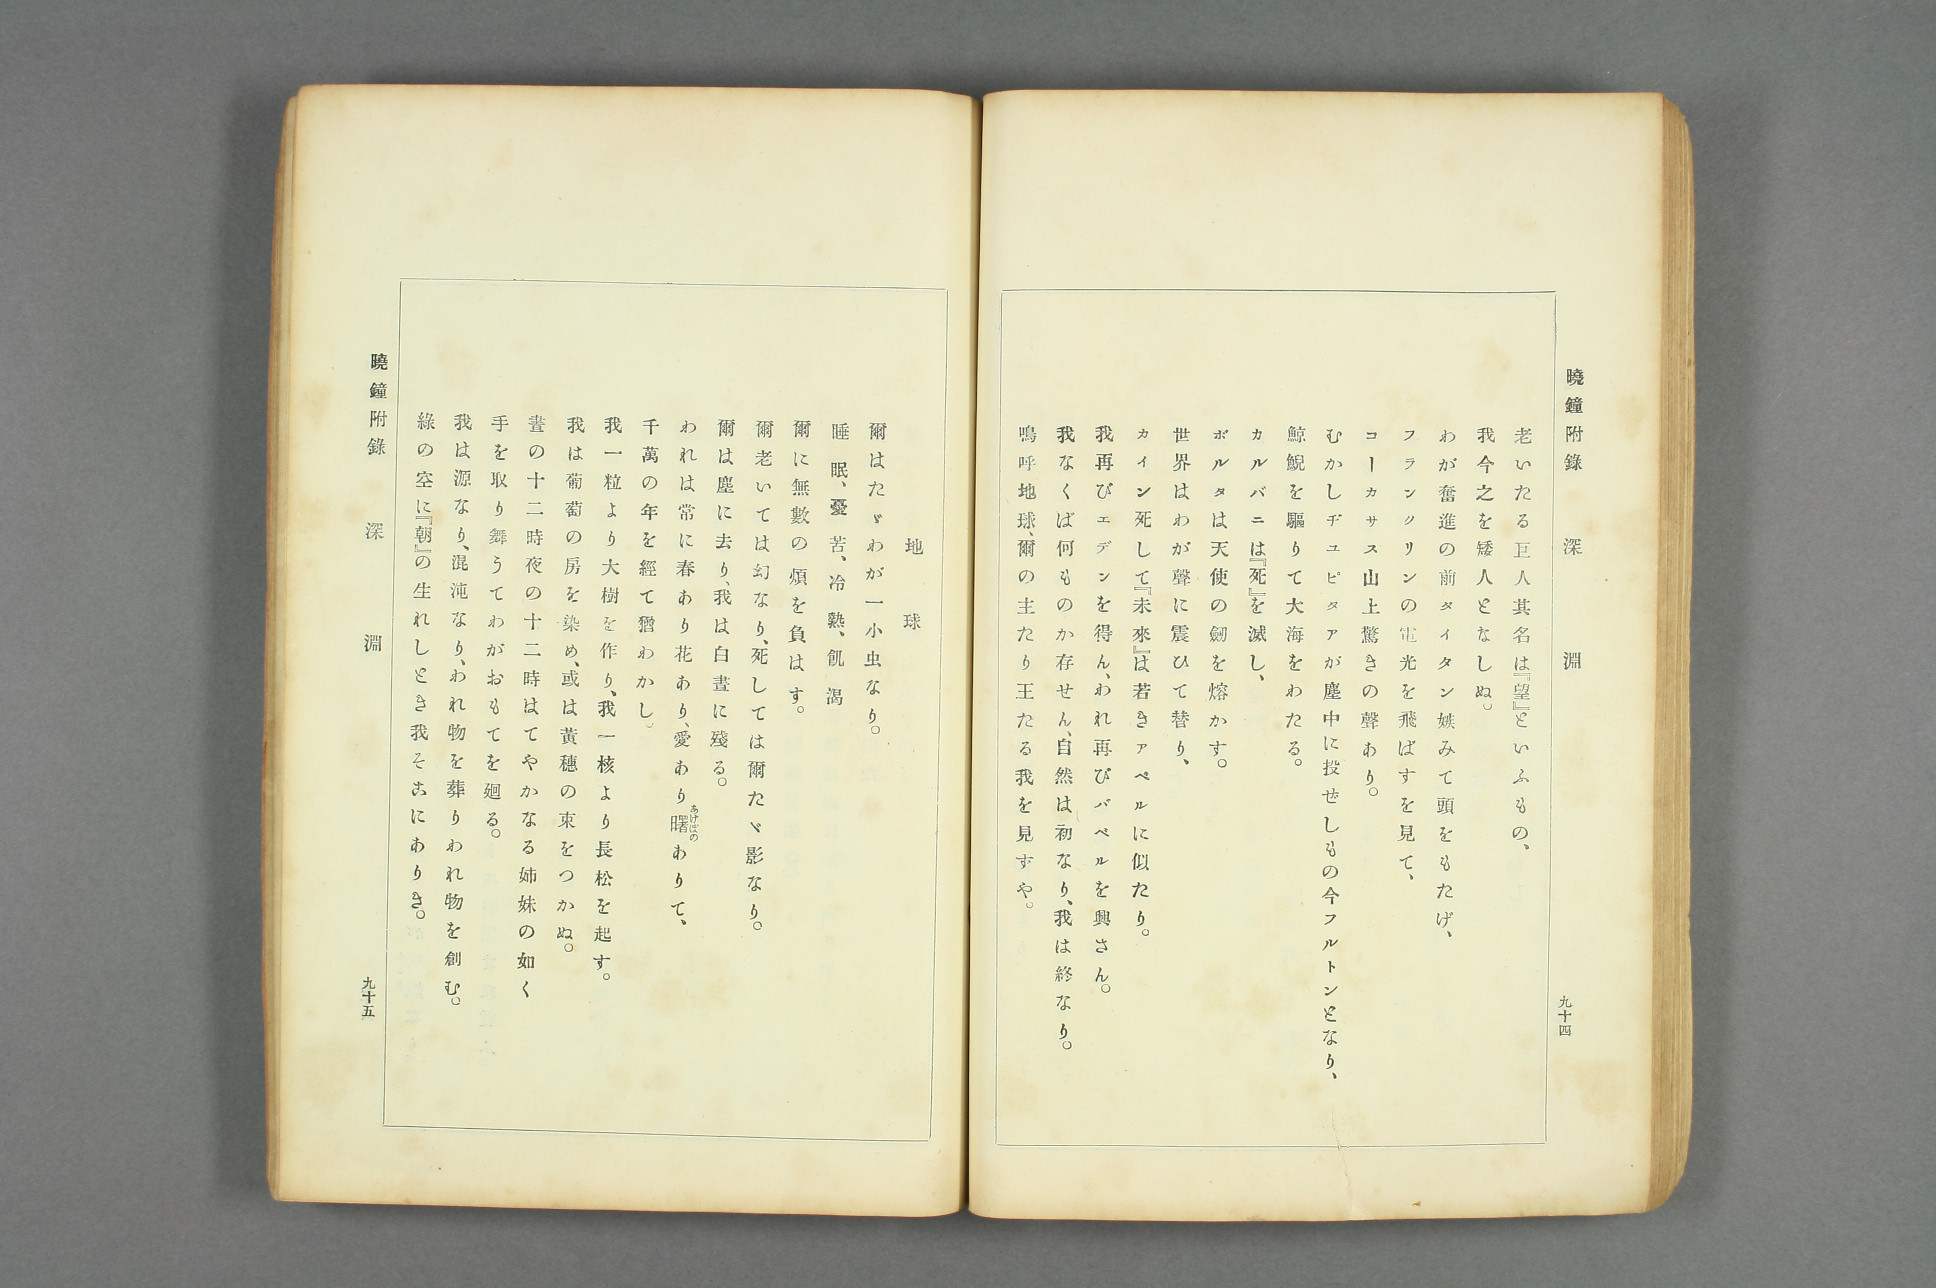 曉鐘附錄　深淵　九十四
老いたる巨人其名は『望』といふもの、
我今之を矮人となしぬ。
わが奮進の前タイタン嫉みて頭をもたげ、
フランクリンの電光を飛ばすを見て、
コーカサス山上驚きの聲あり。
むかしヂユピタアが塵中に投ぜしもの今フルトンとなり、
鯨鯢を驅りて大海をわたる。
カルバニは『死』を滅し、
ボルタは天使の劒を熔かす。
世界はわが聲に震ひて替り、
カイン死して『未來』は若きアベルに似たり。
我再びエデンを得ん、われ再びバベルを興さん。
我なくば何ものか存せん、自然は初なり、我は終なり。
嗚呼地球、爾の主たり王たる我を見ずや。
地球
爾はたゞわが一小虫なり。
睡眠、憂苦、冷熱、飢渴
爾に無數の煩を負はす。
爾老いては幻なり、死しては爾たゞ影なり。
爾は塵に去り、我は白晝に殘る。
われは常に春あり花あり、愛あり曙あけぼのありて、
千萬の年を經て猶わかし。
我一粒より大樹を作り、我一核より長松を起す。
我は葡萄の房を染め、或は黃穗の束をつかぬ。
晝の十二時夜の十二時はてやかなる姉妹の如く
手を取り舞うてわがおもてを廻る。
我は源なり、混沌なり、われ物を葬りわれ物を創む。
綠の空に『朝』の生れしとき我そこにありき。
曉鐘附錄　深淵　九十五